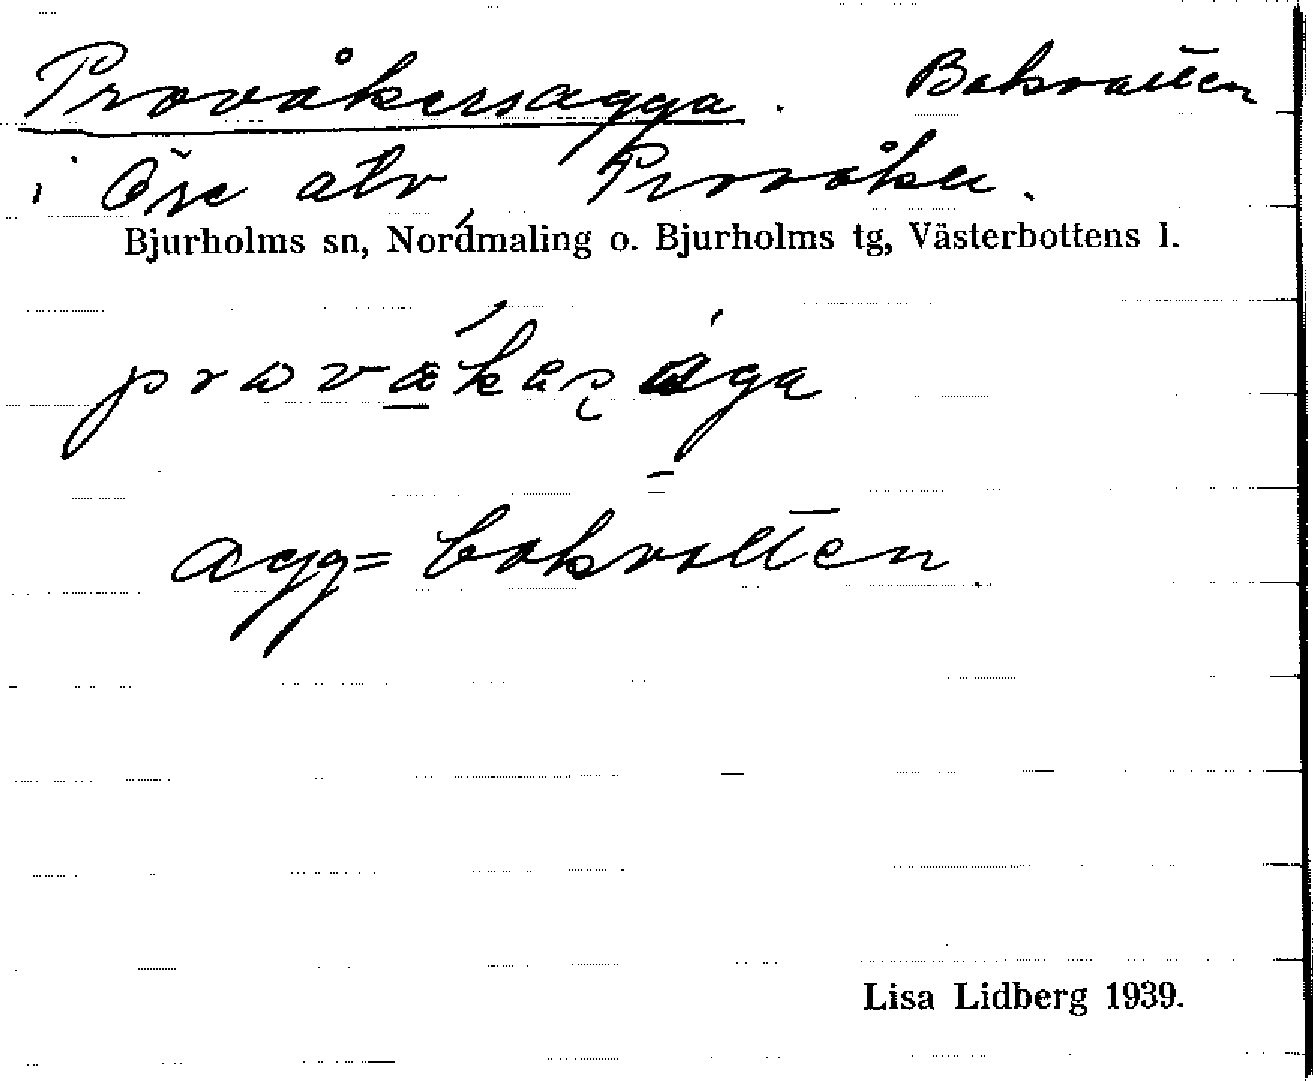 Provåkersagga. Bakvatten
i Öre älv, Provåker.
Bjurholms sn, Nordmaling o. Bjurholms tg, Västerbottens l.
agg= bakvatten
Lisa Lidberg 1939.